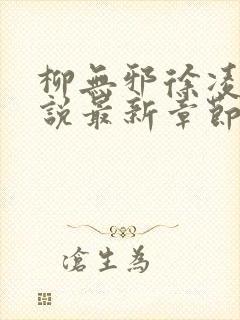 柳無邪徐凌
說最新章節
滄生為